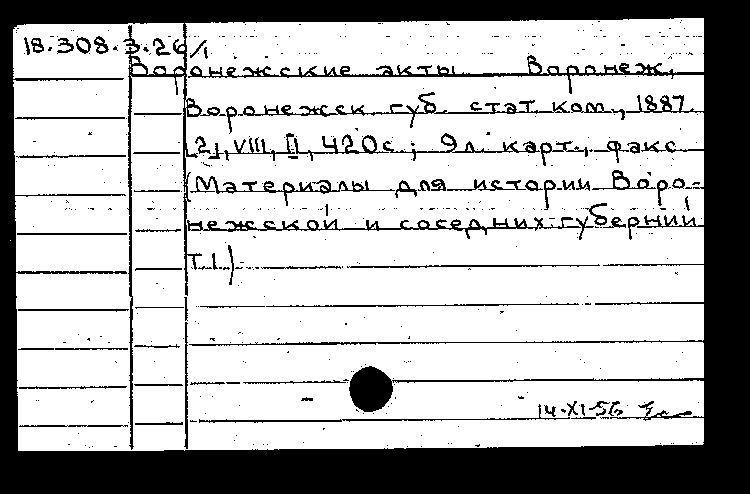 18.308.3.26/1
Воронежские акты Воронеж,
Воронежск губ. стат. ком., 1887.
[2], VIII, II, 420с.; 9л. карт., факс
(Материалы для истории Воро-
нежской и соседних губерний
Т.1.)
14-XI-56